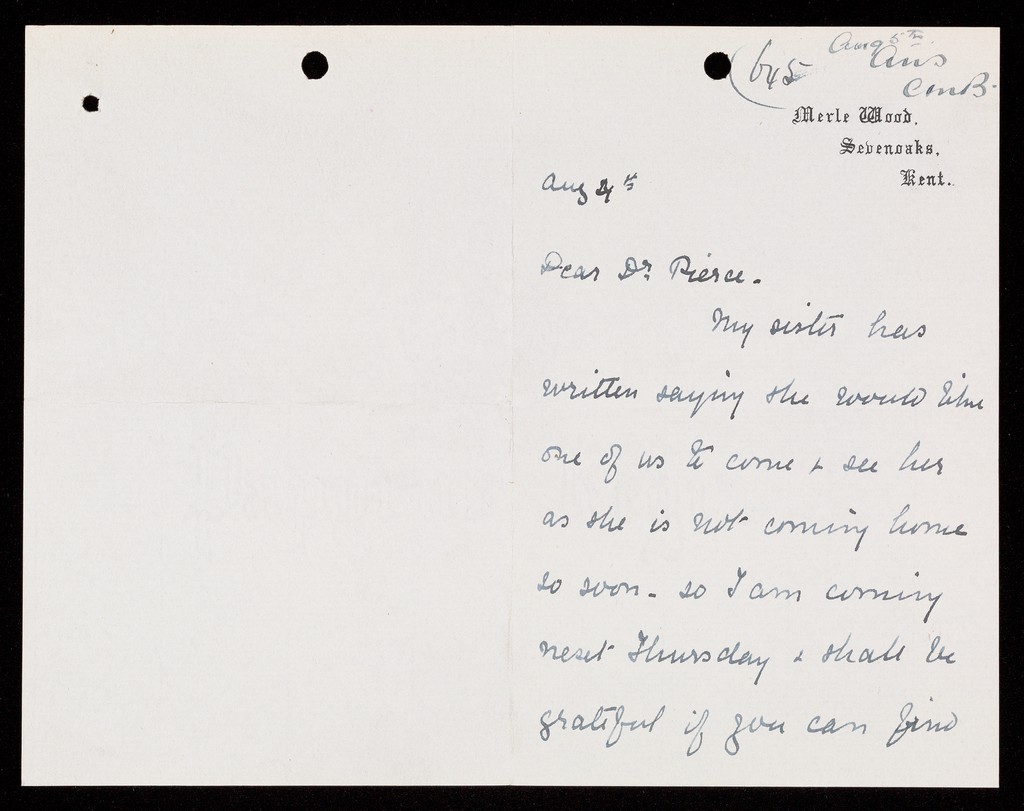 Aug 5th
Ans
645
CMB.
Merle Wood,
Sevenoaks,
Kent.
Aug 4th
Dear Dr. Pierce.
My sister has
written saying she would like
one of us to come + see her
as she is not coming home
so soon - so I am coming
next Thursday + shall be
grateful if you can find